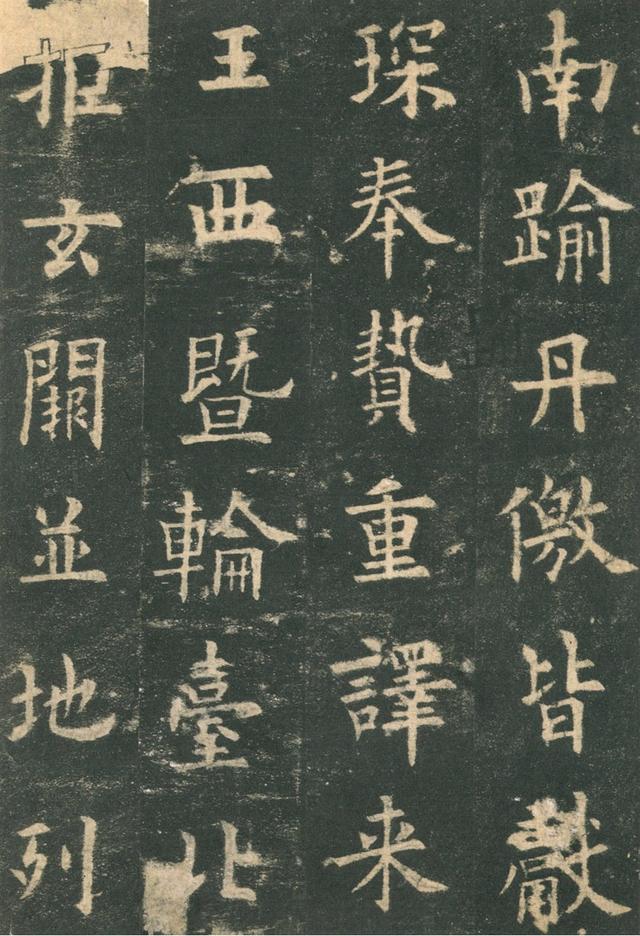 南踰丹儌皆獻
琛奉贄重譯来
王西暨輪臺北
拒玄闕並地列